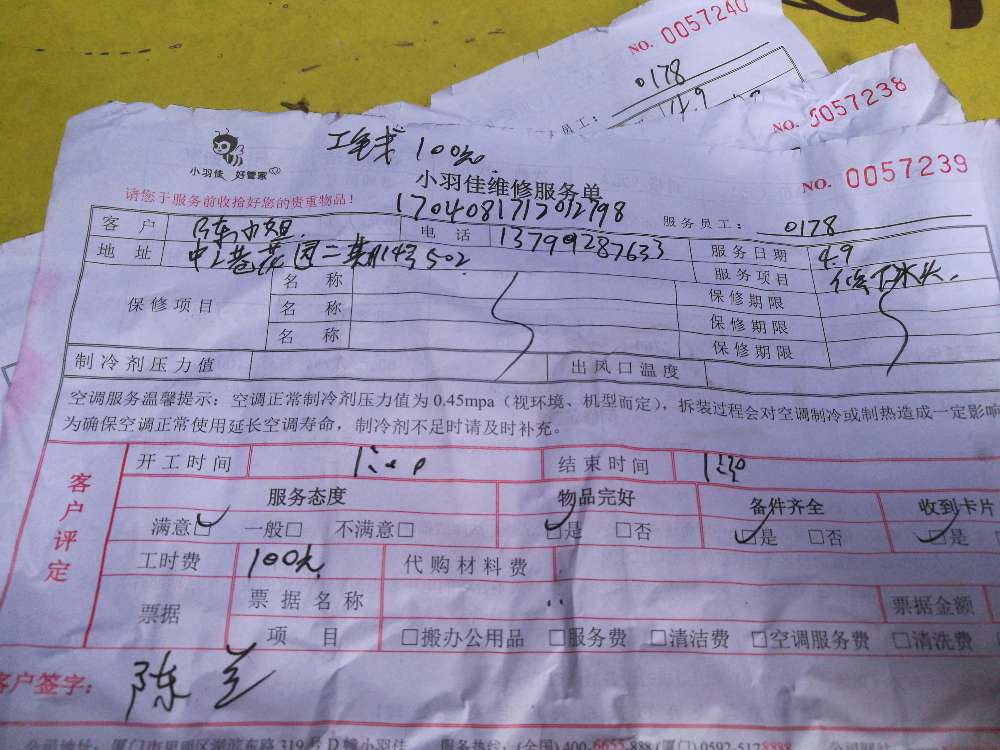 NO. 0057240
0178
4.9
员工:
NO. 0057238
工钱 100元
小羽佳 好管家
小羽佳维修服务单
NO. 0057239
请您于服务前收拾好您的贵重物品!
1704081712012798
服务员工: 0178
客户 陈小姐 电话 13799287633 服务日期 4.9
地址 花园二期143 502 服务项目 修下水
保修项目 名称 保修期限
名称 保修期限
名称 保修期限
制冷剂压力值 出风口温度
空调服务温馨提示:空调正常制冷剂压力值为 0.45mpa(视环境、机型而定),拆装过程会对空调制冷或制热造成一定影响
为确保空调正常使用延长空调寿命,制冷剂不足时请及时补充。
客户评定
开工时间 结束时间
服务态度 物品完好 备件齐全 收到卡片
满意□ 一般□ 不满意□ □是 □否 □是 □否 □是
工时费 100元 代购材料费
票据 票据名称 票据金额
项目 □搬办公用品 □服务费 □清洁费 □空调服务费 □清洗费
客户签字: 陈兰
公司地址: 厦门市思明区湖滨东路 319 号 D 幢小羽佳 服务热线:(全国)400-6655-888 (厦门)0592-512